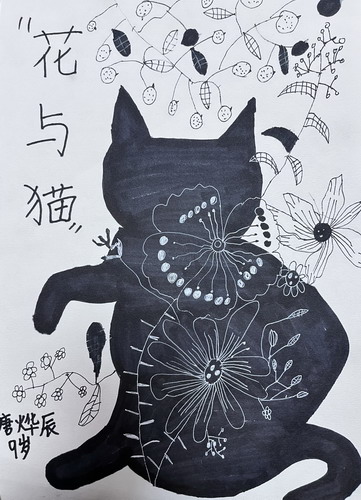 "花与猫"
唐烨辰
9岁